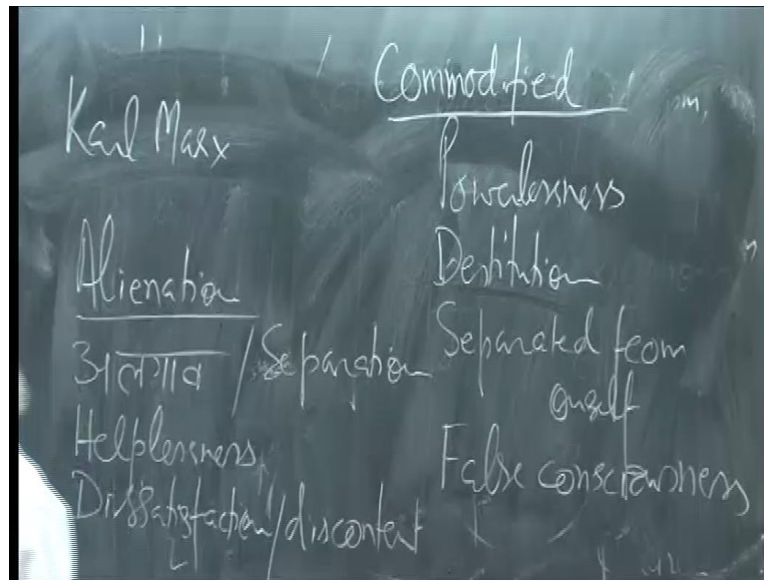 Karl Marx
Alienation
अलगाव / Separation
Helplessness
Dissatisfaction/discontent
Commodified
Powerlessness
Destitution
Separated from
oneself
False consciousness